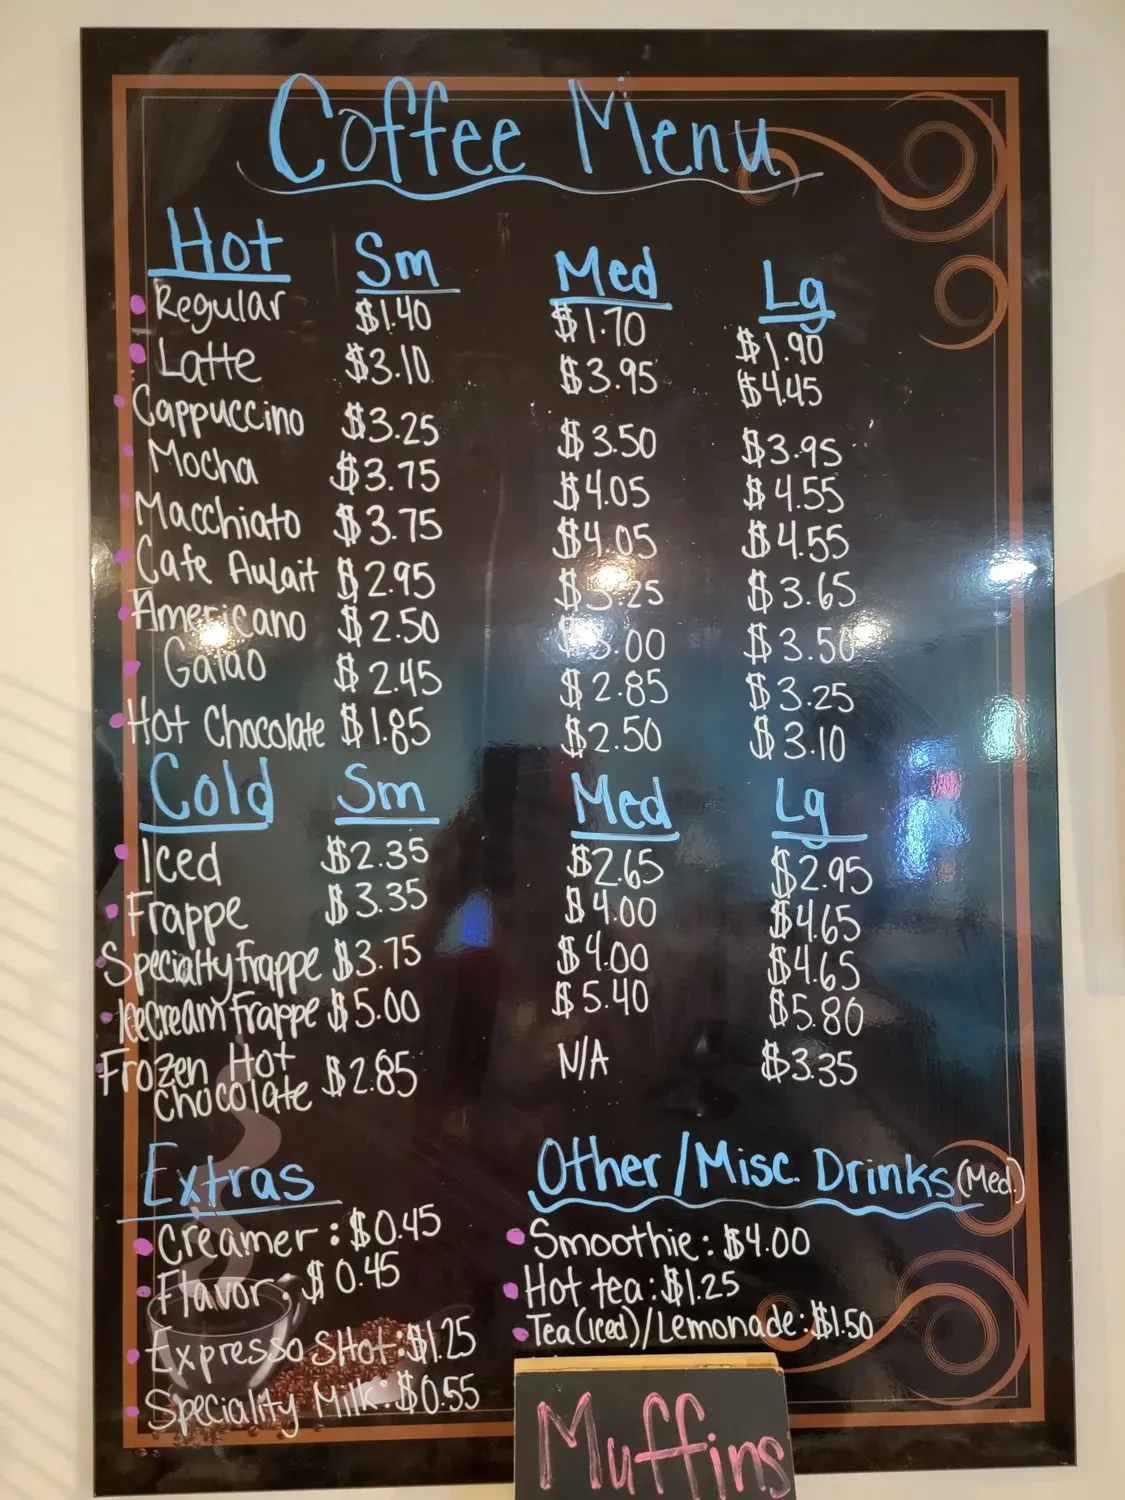 Coffee Menu
Hot Sm Med Lg
Regular $1.40 $1.70 $1.90
Latte $3.10 $3.95 $4.45
Cappuccino $3.25 $3.50 $3.95
Mocha $3.75 $4.05 $4.55
Macchiato $3.75 $4.05 $4.55
Cafe Aulait $2.95 $3.25 $3.65
Americano $2.50 $3.00 $3.50
Galao $2.45 $2.85 $3.25
Hot Chocolate $1.85 $2.50 $3.10
Cold Sm Med Lg
Iced $2.35 $2.65 $2.95
Frappe $3.35 $4.00 $4.65
Specialty Frappe $3.75 $4.00 $4.65
Icecream Frappe $5.00 $5.40 $5.80
Frozen Hot
Chocolate $2.85 N/A $3.35
Extras
Creamer: $0.45
Flavor: $0.45
Expresso SHot: $1.25
Speciality Milk: $0.55
Other/Misc. Drinks (Med.)
Smoothie: $4.00
Hot tea: $1.25
Tea(iced)/Lemonade: $1.50
Muffins